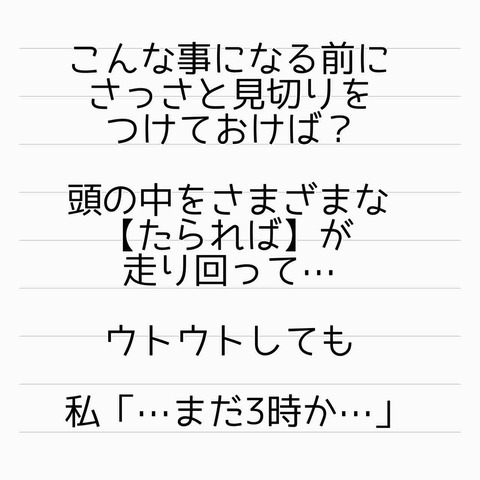 こんな事になる前に
さっさと見切りを
つけておけば？
頭の中をさまざまな
【たられば】が
走り回って…
ウトウトしても
私「…まだ3時か…」